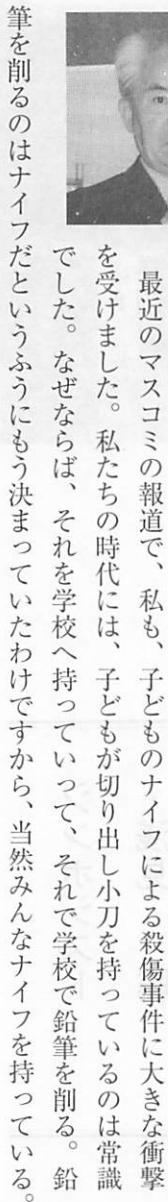 最近のマスコミの報道で、私も、子どものナイフによる殺傷事件に大きな衝撃
を受けました。私たちの時代には、子どもが切り出し小刀を持っているのは常識
でした。なぜならば、それを学校へ持っていって、それで学校で鉛筆を削る。鉛
筆を削るのはナイフだというふうにもう決まっていたわけですから、当然みんなナイフを持っている。